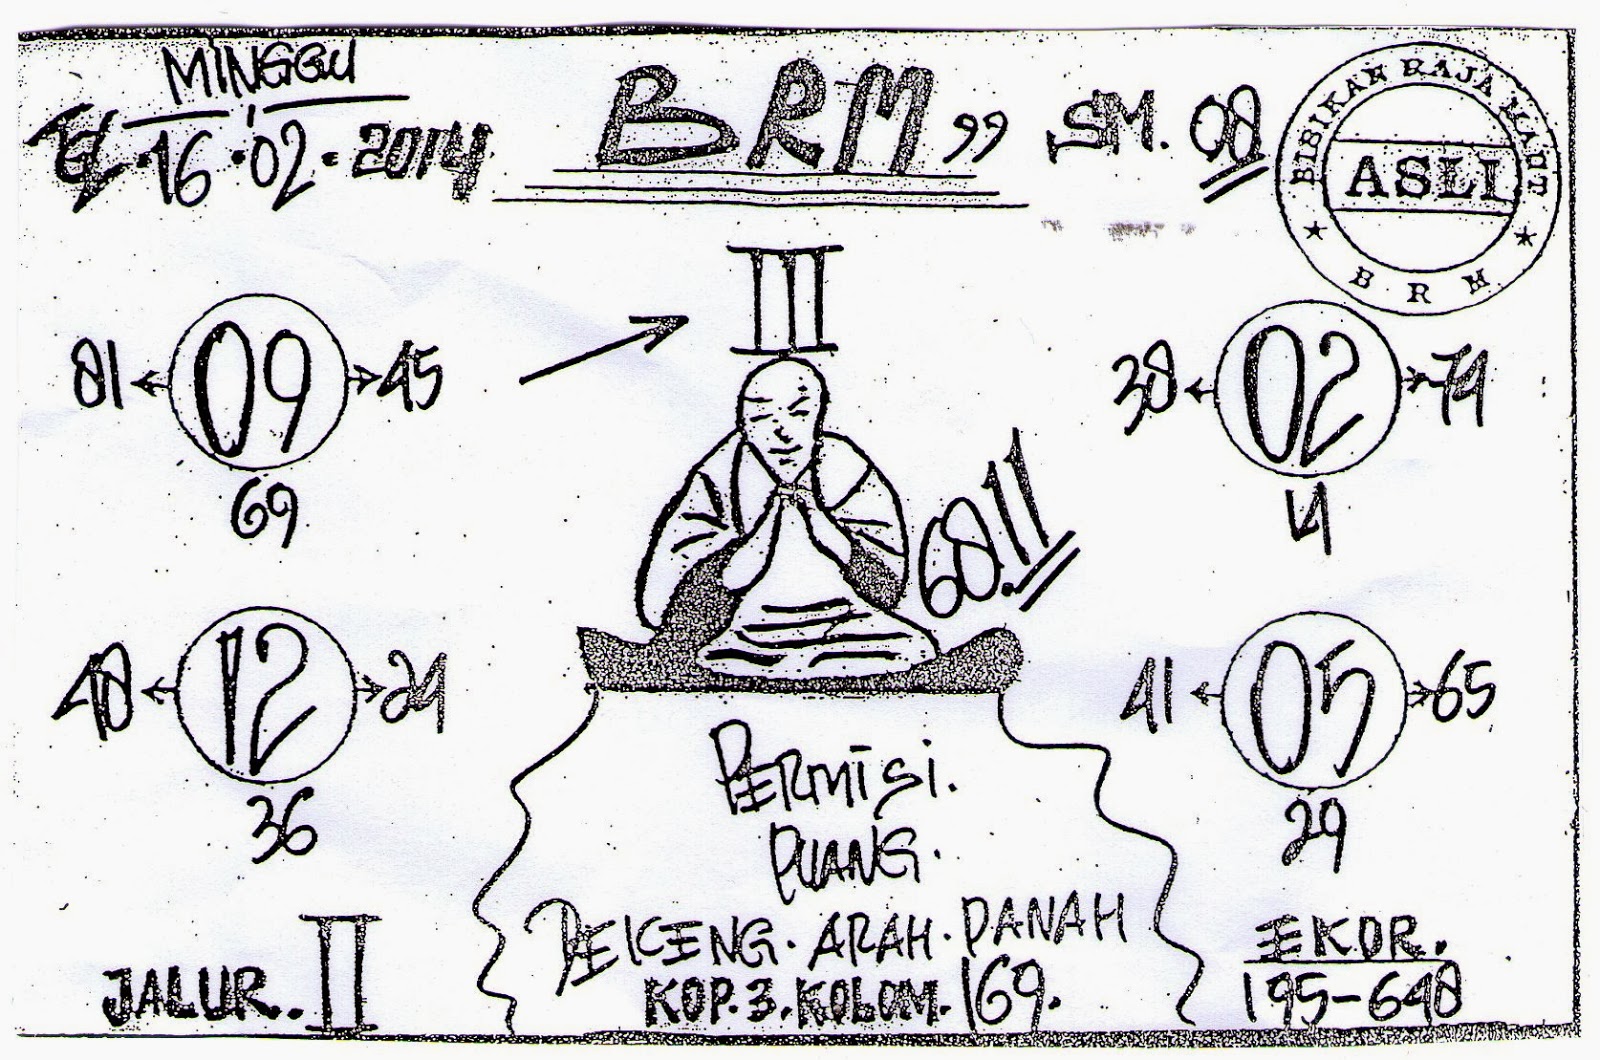 MINGGU
TGL. 16.02.2014
BRM ,,
SM. 08
BISIKAN RAJA MAUT
ASLI
BRM
III
81 09 45
69
38 02 79
14
68.11
48 12 24
36
41 05 65
29
PERMISI.
PUANG.
BEKENG. ARAH. PANAH
KOP. 3. KOLOM. 169.
JALUR.. II
EKOR.
195-648